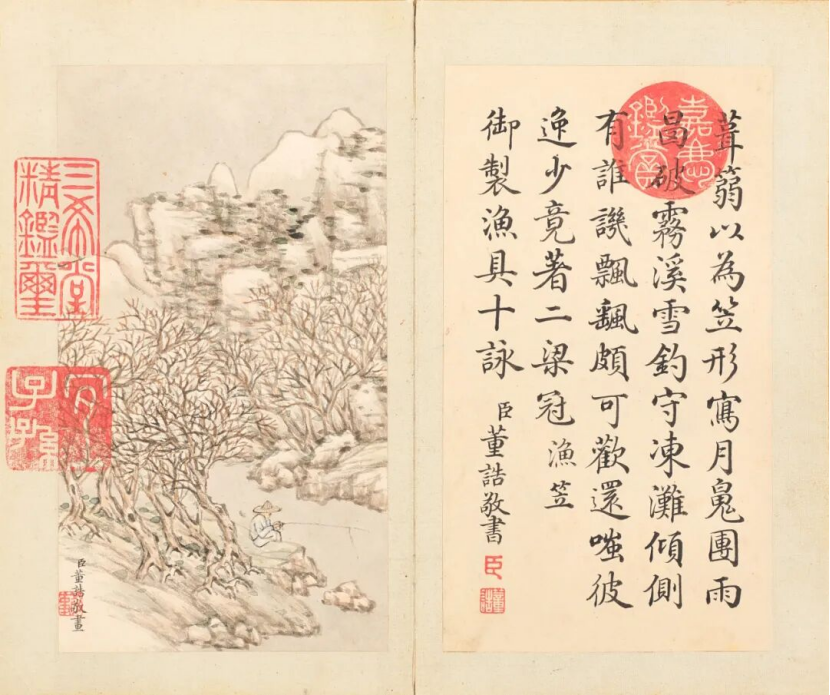 嘉慶鑑賞
葺篛以為笠形寫月團雨
冒破霧溪雪釣守凍灘傾側
有誰譏飄飖頗可歡還嗤彼
逸少竟著二梁冠 漁笠
御製漁具十詠
臣董誥敬書
臣
三希堂精鑑璽
宜子孫
臣董誥敬畫